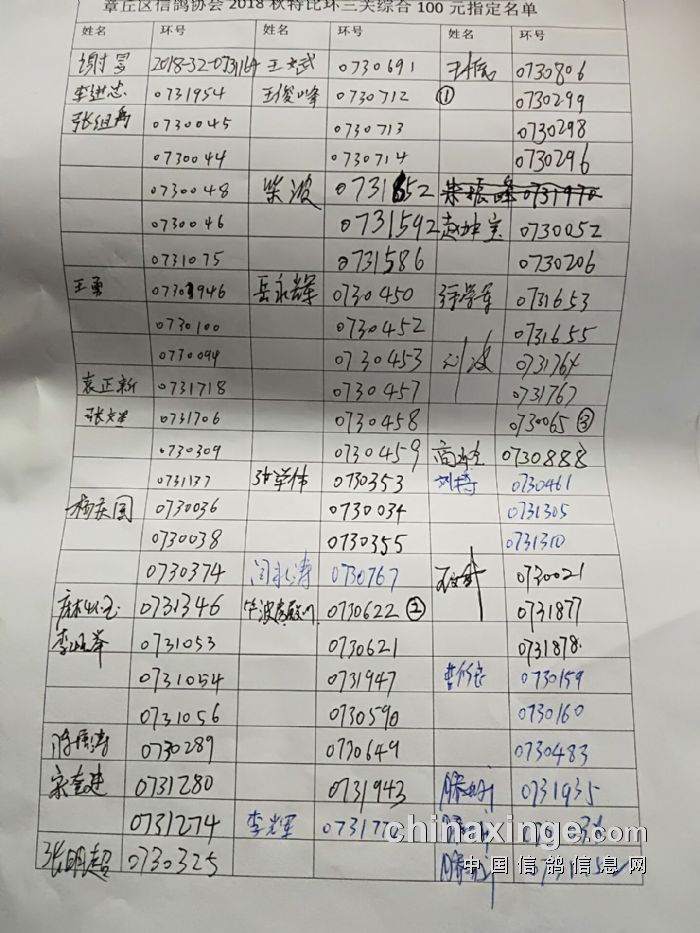 章丘区信鸽协会2018秋特比环三关综合100元指定名单
姓名 环号 姓名 环号 姓名 环号
2018-32-0731164 王文武 0730691 0730806
李进志 0731954 王俊峰 0730712 ① 0730299
张组勇 0730045 0730713 0730298
0730044 0730714 0730296
0730048 柴波 0731652 柴振峰 0731970
0730046 0731592 赵坤宝 0730052
0731075 0731586 0730206
王勇 0730946 岳永辉 0730450 0731653
0730100 0730452 0731655
0770094 0730453 刘波 0731764
袁正新 0731718 0730457 0731767
0731706 0730458 0730065 ③
0730309 0730459 0730888
0731137 0730353 刘持 0730461
杨庆国 0730036 0730034 0731305
0730038 0730355 0731310
0730374 闫永涛 0730767 0730021
0731346 0730622 ② 0731877
0731053 0730621 0731878
0731054 0731947 0730159
0731056 0730590 0730160
0730289 0730649 0730483
宋奎建 0731280 0731943 0731935
0731274 李光军
张明超 0730325
chinaxinge.com
中国信鸽信息网